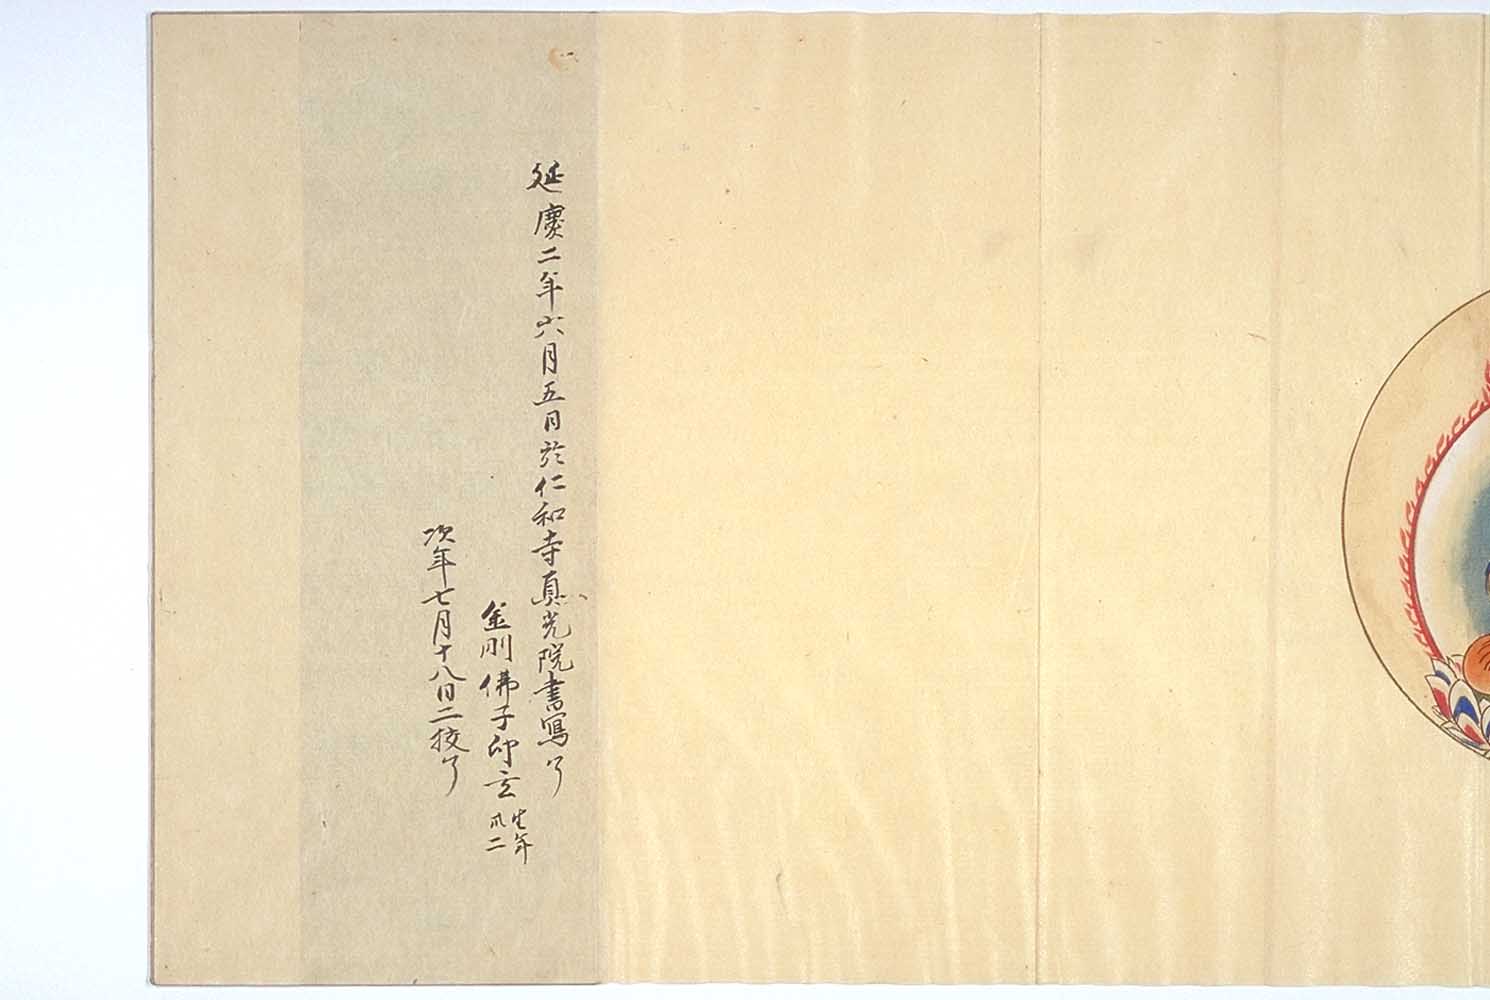 延慶二年六月五日於仁和寺真光院書寫了
金剛佛子印玄生年卅二
次年七月十八日二挍了